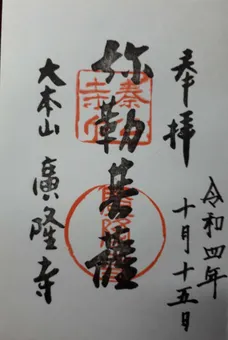 奉拝
令和四年
十月十五日
弥勒菩薩
大本山
廣隆寺